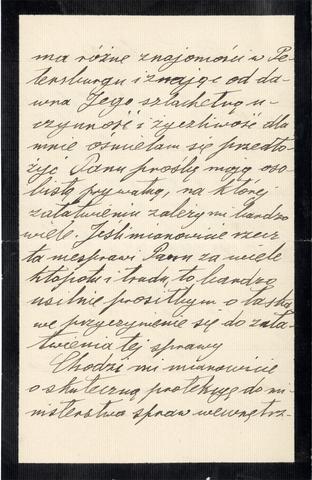 ma różne znajomości w Pe-
tersburgu i znając od da-
wna Jego szlachetną u-
czynność i życzliwość dla
mnie ośmielam się przedło-
żyć Panu prośbę moją oso-
bistą prywatną, na której
załatwieniu zależy mi bardzo
wiele. Jeśli mianowicie rzecz
ta niesprawi Panu za wiele
kłopotu i trudu, to bardzo
usilnie prosiłbym o łaska-
we przyczynienie się do zała-
twienia tej sprawy
Chodzi mi mianowicie
o skuteczną protekcyę do mi-
nisterstwa spraw wewnętrz-